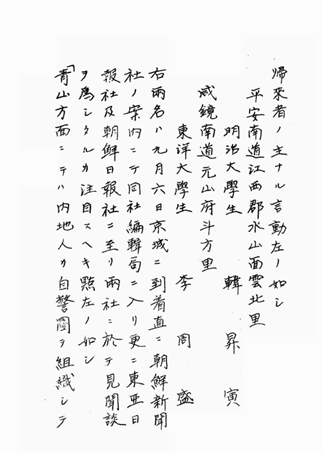 歸來者ノ主ナル言動左ノ如シ
平安南道江西郡水山面雲北里
明治大學生 韓昇寅
咸鏡南道元山府斗方里
東洋大學生 李周盛
右兩名ハ九月六日京城ニ到着直ニ朝鮮新聞
社ノ案内ニテ同社編輯局ニ入リ更ニ東亜日
報社及朝鮮日報社ニ至リ両社ニ於テ見聞談
ヲ為シタルカ注目スヘキ點左ノ如シ
「青山方面ニテハ内地人カ自警團ヲ組織シテ